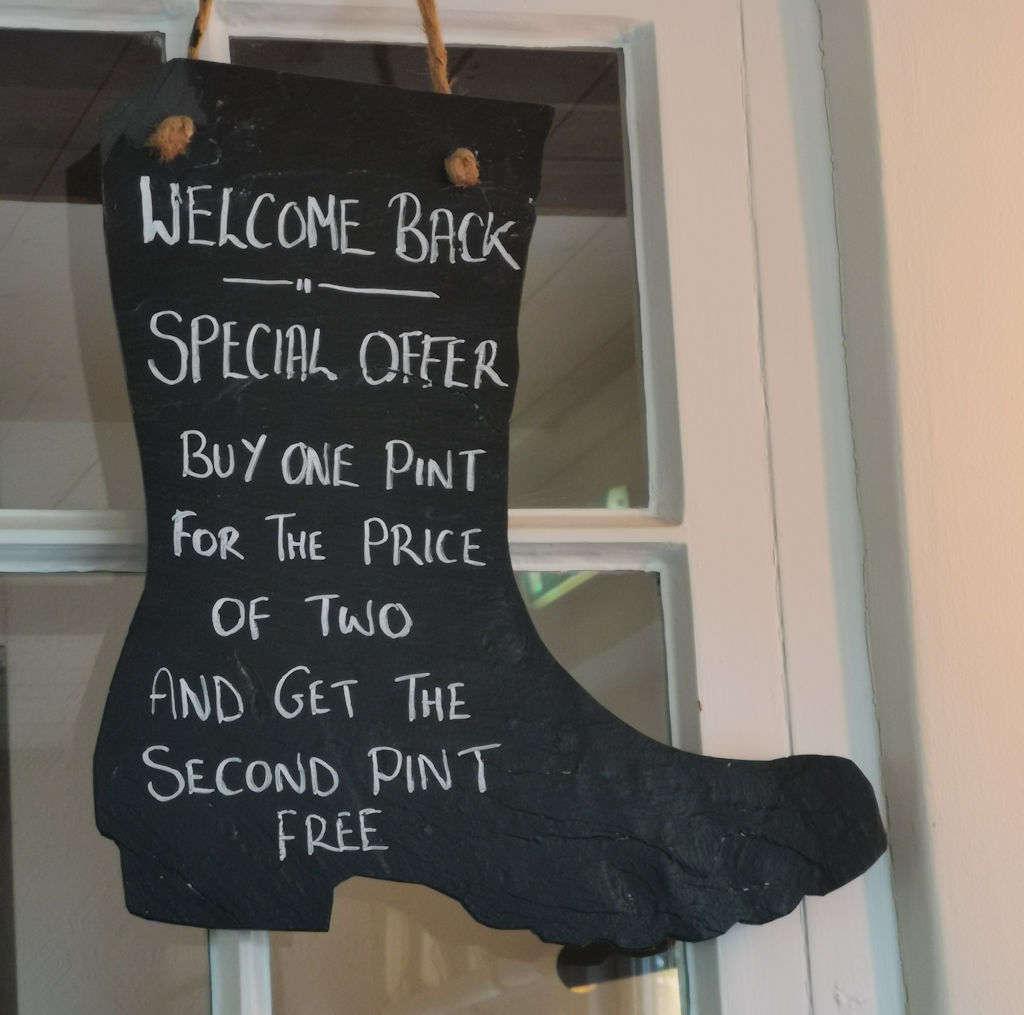 WELCOME BACK
SPECIAL OFFER
BUY ONE PINT
FOR THE PRICE
OF TWO
AND GET THE
SECOND PINT
FREE